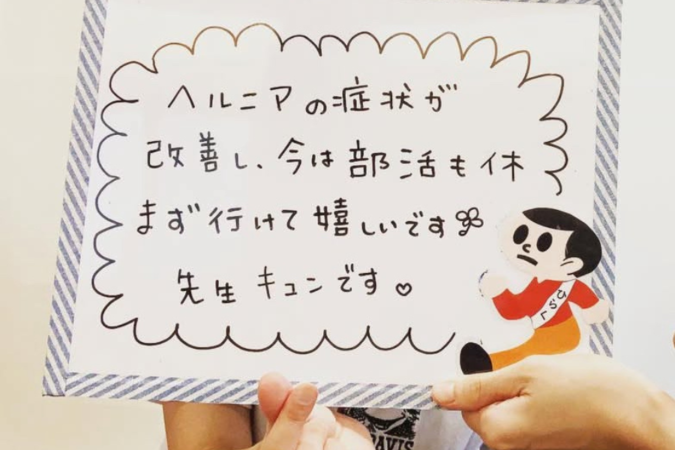 ヘルニアの症状が
改善し、今は部活も休
まず行けて嬉しいです
先生キュンです♡
ひらく
AVIS